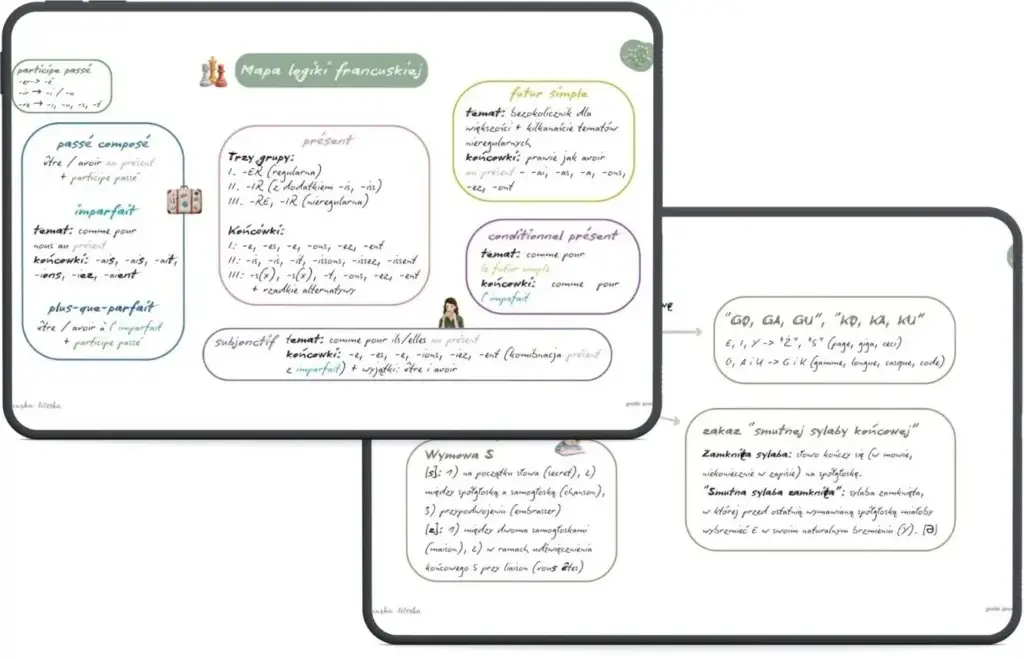 participe passé
-er -> -é
-ir -> -i / -u
-re -> -i, -u, -s, -t
Mapa logiki francuskiej
passé composé
être / avoir au présent
+ participe passé
imparfait
temat: comme pour
nous au présent
końcówki: -ais, -ais, -ait,
-ions, -iez, -aient
plus-que-parfait
être / avoir à l'imparfait
+ participe passé
présent
Trzy grupy:
I. -ER (regularna)
II. -IR (z dodatkiem -is, -iss)
III. -RE, -IR (nieregularna)
Końcówki:
I: -e, -es, -e, -ons, -ez, -ent
II: -is, -is, -it, -issons, -issez, -issent
III: -s(x), -s(x), -t, -ons, -ez, -ent
+ rzadkie alternatywy
futur simple
temat: bezokolicznik dla
większości + kilkanaście tematów
nieregularnych
końcówki: prawie jak avoir
au présent - -ai, -as, -a, -ons,
-ez, -ont
conditionnel présent
temat: comme pour
le futur simple
końcówki: comme pour
l'imparfait
subjonctif temat: comme pour ils/elles au présent
końcówki: -e, -es, -e, -ions, -iez, -ent (kombinacja présent
z imparfait) + wyjątki: être i avoir
"GO, GA, GU", "KO, KA, KU"
E, I, Y -> "Ż", "S" (page, giga, ceci)
O, A i U -> G i K (gamme, longue, casque, code)
zakaz "smutnej sylaby końcowej"
Zamknięta sylaba: słowo kończy się (w mowie,
niekoniecznie w zapisie) na spółgłoskę.
"Smutna sylaba zamknięta": sylaba zamknięta,
w której przed ostatnią wymawianą spółgłoską miałoby
wybrzmieć E w swoim naturalnym brzmieniu (Y). [Ə]
Wymowa S
[s]: 1) na początku słowa (secret), 2)
między spółgłoską a samogłoską (chanson),
3) przy podwojenia (embrasser)
[z]: 1) między dwoma samogłoskami
(maison), 2) w ramach udźwięcznienia
końcowego S przy liaison (vous êtes)